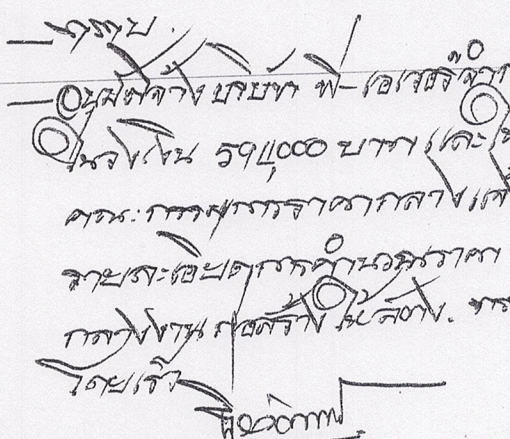 — ทราบ.
— อนุมัติจ้าง บริษัท พี-เอเวอรี่ จำก
ในวงเงิน 594,000 บาท และให้
คณะกรรมการราคากลาง
รายละเอียดการคำนวณราคา
กลางงานก่อสร้าง ให้
โดยเร็ว